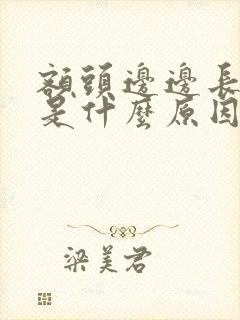 額頭邊邊長
是什麼原因
梁美君